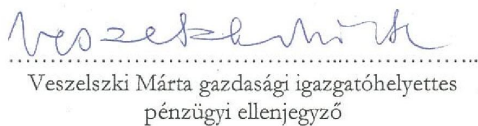 Veszelszki Márta
Veszelszki Márta gazdasági igazgatóhelyettes
pénzügyi ellenjegyző